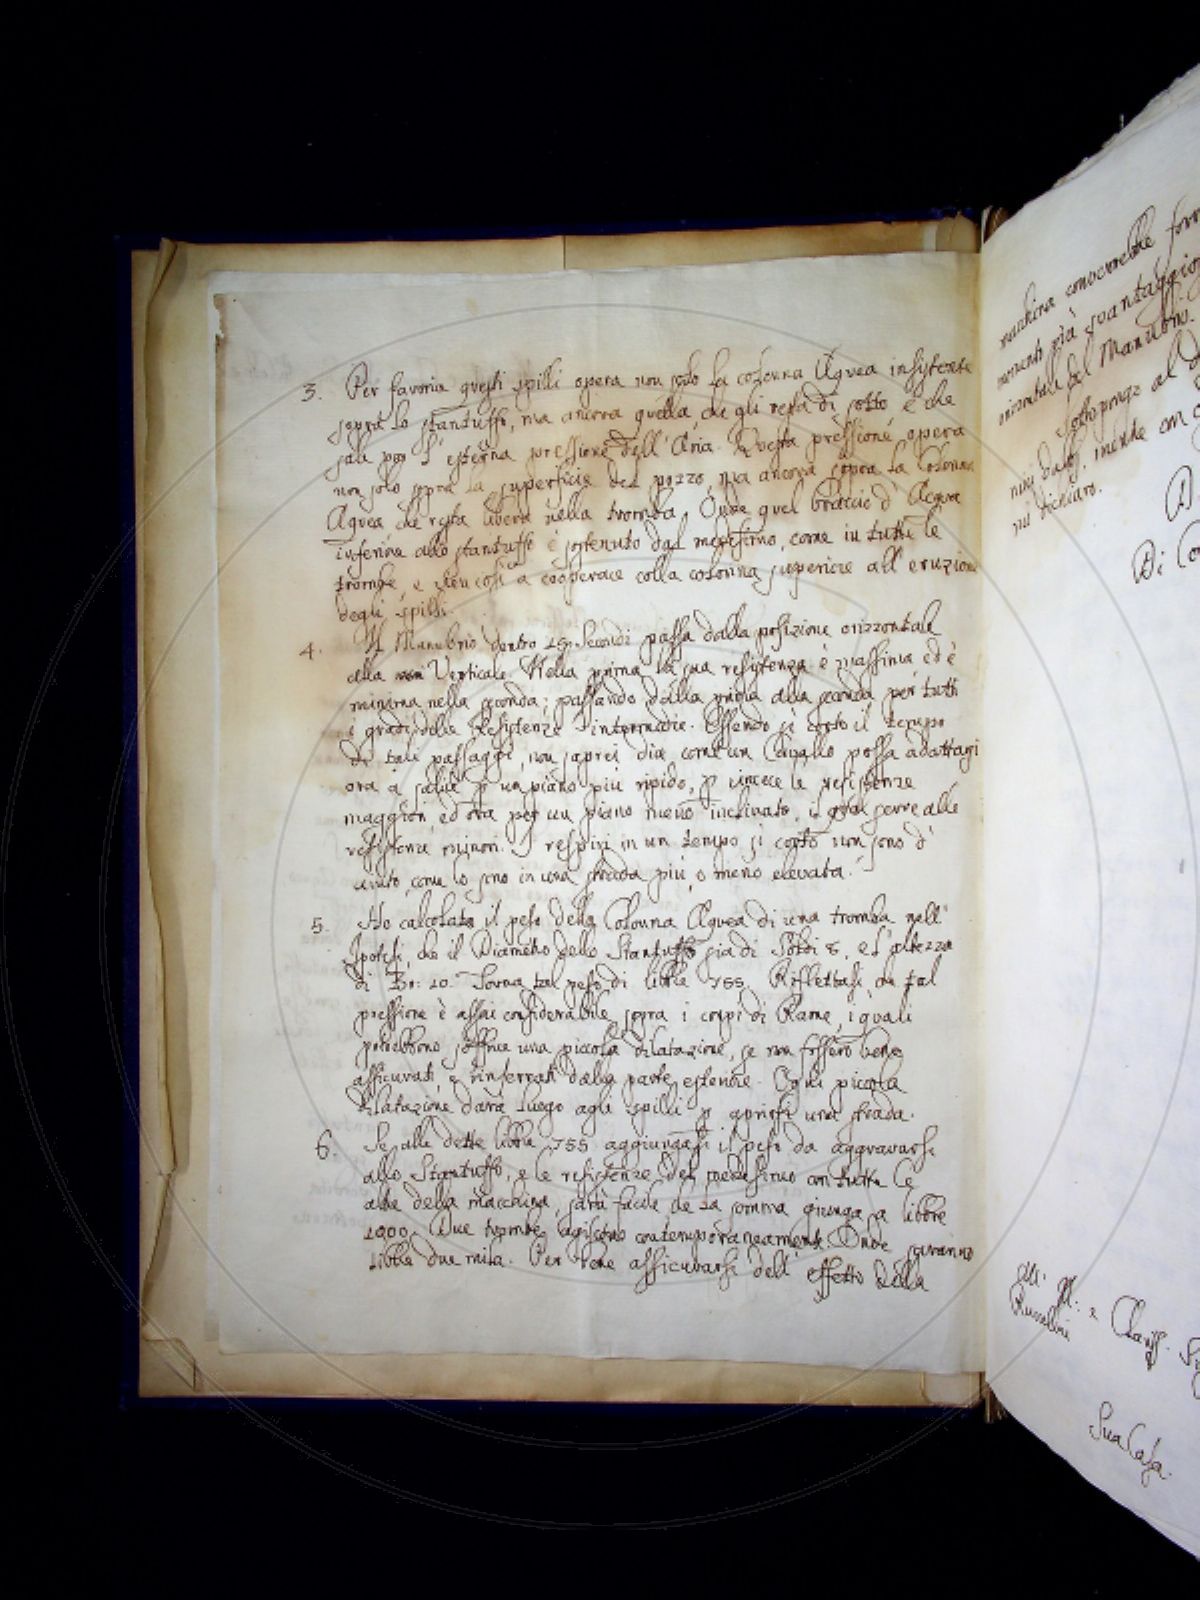 3. Per favorir questi spilli opera non solo la colonna Aquea insistente
sopra lo stantuffo, ma ancora quella, che gli resta di sotto e che
sale per l'esterna pressione dell'Aria. Questa pressione opera
non solo sopra la superficie del pozzo, ma ancora sopra la Colonna
Aquea che resta libera nella tromba. Onde quel braccio d'Acqua
inferiore allo stantuffo è sostenuto dal medesimo, come in tutte le
trombe, e vien così a cooperare colla colonna superiore all'eruzione
degli spilli.
4. Il Manubrio dentro 15 Secondi passa dalla posizione orizzontale
alla Verticale. Nella prima la sua resistenza è massima ed è
minima nella seconda; passando dalla prima alla seconda per tutti
i gradi delle Resistenze intermedie. Essendo sì corto il tempo
di tali passaggi, non saprei dir come un Cavallo possa adattarsi
ora a salire p un piano più ripido, p vincere le resistenze
maggiori, ed ora per un piano meno inclinato, il qual serve alle
resistenze minori. I respiri in un tempo sì corto non sono d'
aiuto, come lo sono in una strada più, o meno elevata.
5. Ho calcolato il peso della Colonna Aquea di una tromba nell'
Ipotesi, che il Diametro dello Stantuffo sia di Soldi 8, e l'altezza
di Br: 10. Torna tal peso di libbre 755. Riflettasi, che tal
pressione è assai considerabile sopra i corpi di Rame, i quali
potrebbono soffrire una piccola dilatazione, se non fossero bene
assicurati, e rinserrati dalla parte esteriore. Ogni piccola
dilatazione darà luogo agli spilli p aprirsi una strada.
6. Se alle dette libbre 755 aggiungasi il peso da aggravarsi
allo Stantuffo, e le resistenze del medesimo con tutte le
altre della macchina, sarà facile che la somma giunga a libbre
1000. Due trombe agiscono contemporaneamente. Onde saranno
libbre due mila. Per bene assicurarsi dell'effetto della
macchina converrebbe
momenti più svantaggio
orizzontale del Manubrio.
Sottopongo al
mi dichiaro.
Di
Ruccellini
Sua Casa.